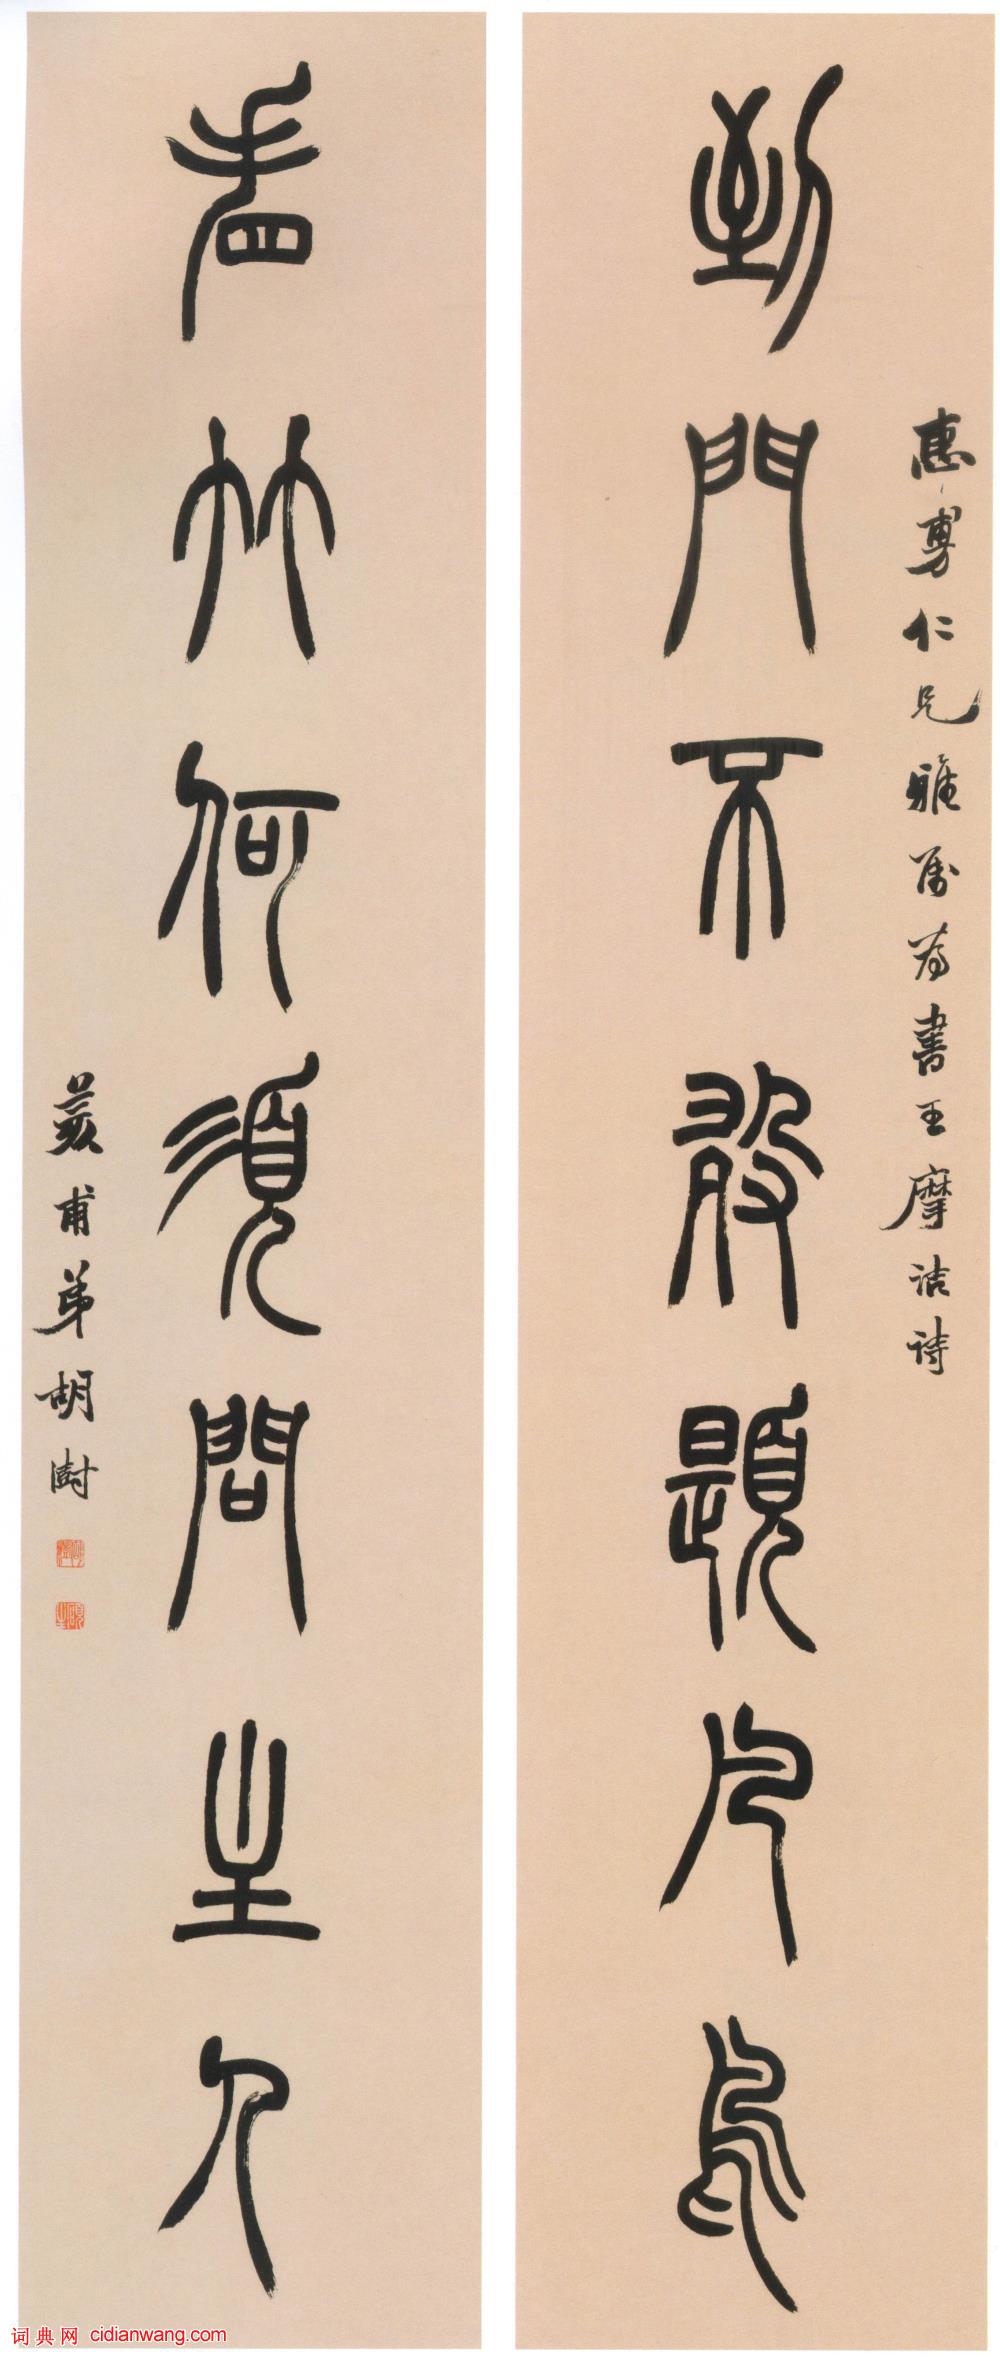 惠旉仁兄雅屬為書王摩詰詩
到門不敢題凡鳥
看竹何須問主人
荄甫弟胡澍
词典网 cidianwang.com